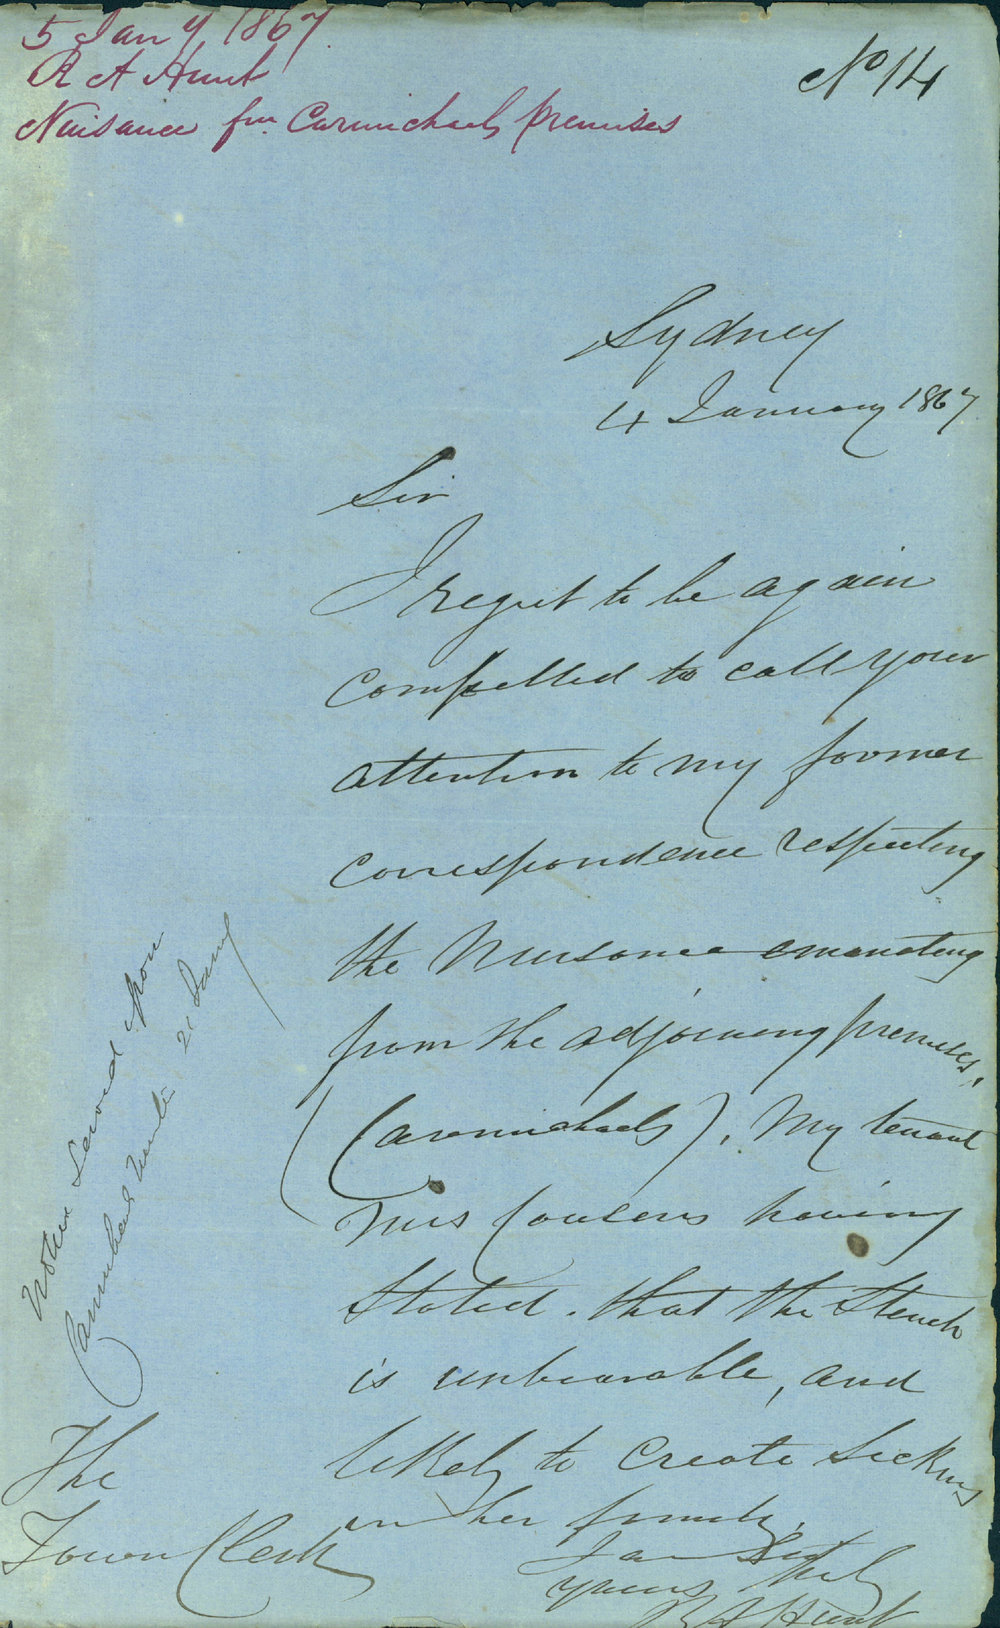 5 Jany 1867
R A Hunt
Nuisance fm Carmichaels premises
No 14
Sydney
4 January 1867
Sir
I regret to be again
compelled to call your
attention to my former
correspondence respecting
the Nuisance emanating
from the adjoining premises,
(Carmichaels). My tenant
Mrs Cousens having
Stated. that the Stench
is unbearable, and
likely to create Sickness
in her family.
I am Sir
yours truly
R A Hunt
The
Town Clerk
Notice Served upon
Carmichael 21 Jany